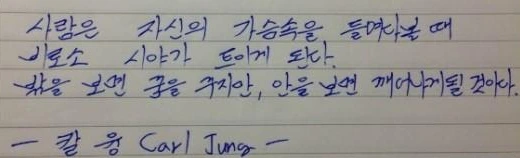 사람은 자신의 가슴속을 들여다볼 때
비로소 시야가 트이게 된다.
밖을 보면 꿈을 꾸지만, 안을 보면 깨어나게될 것이다.
— 칼 융 Carl Jung —